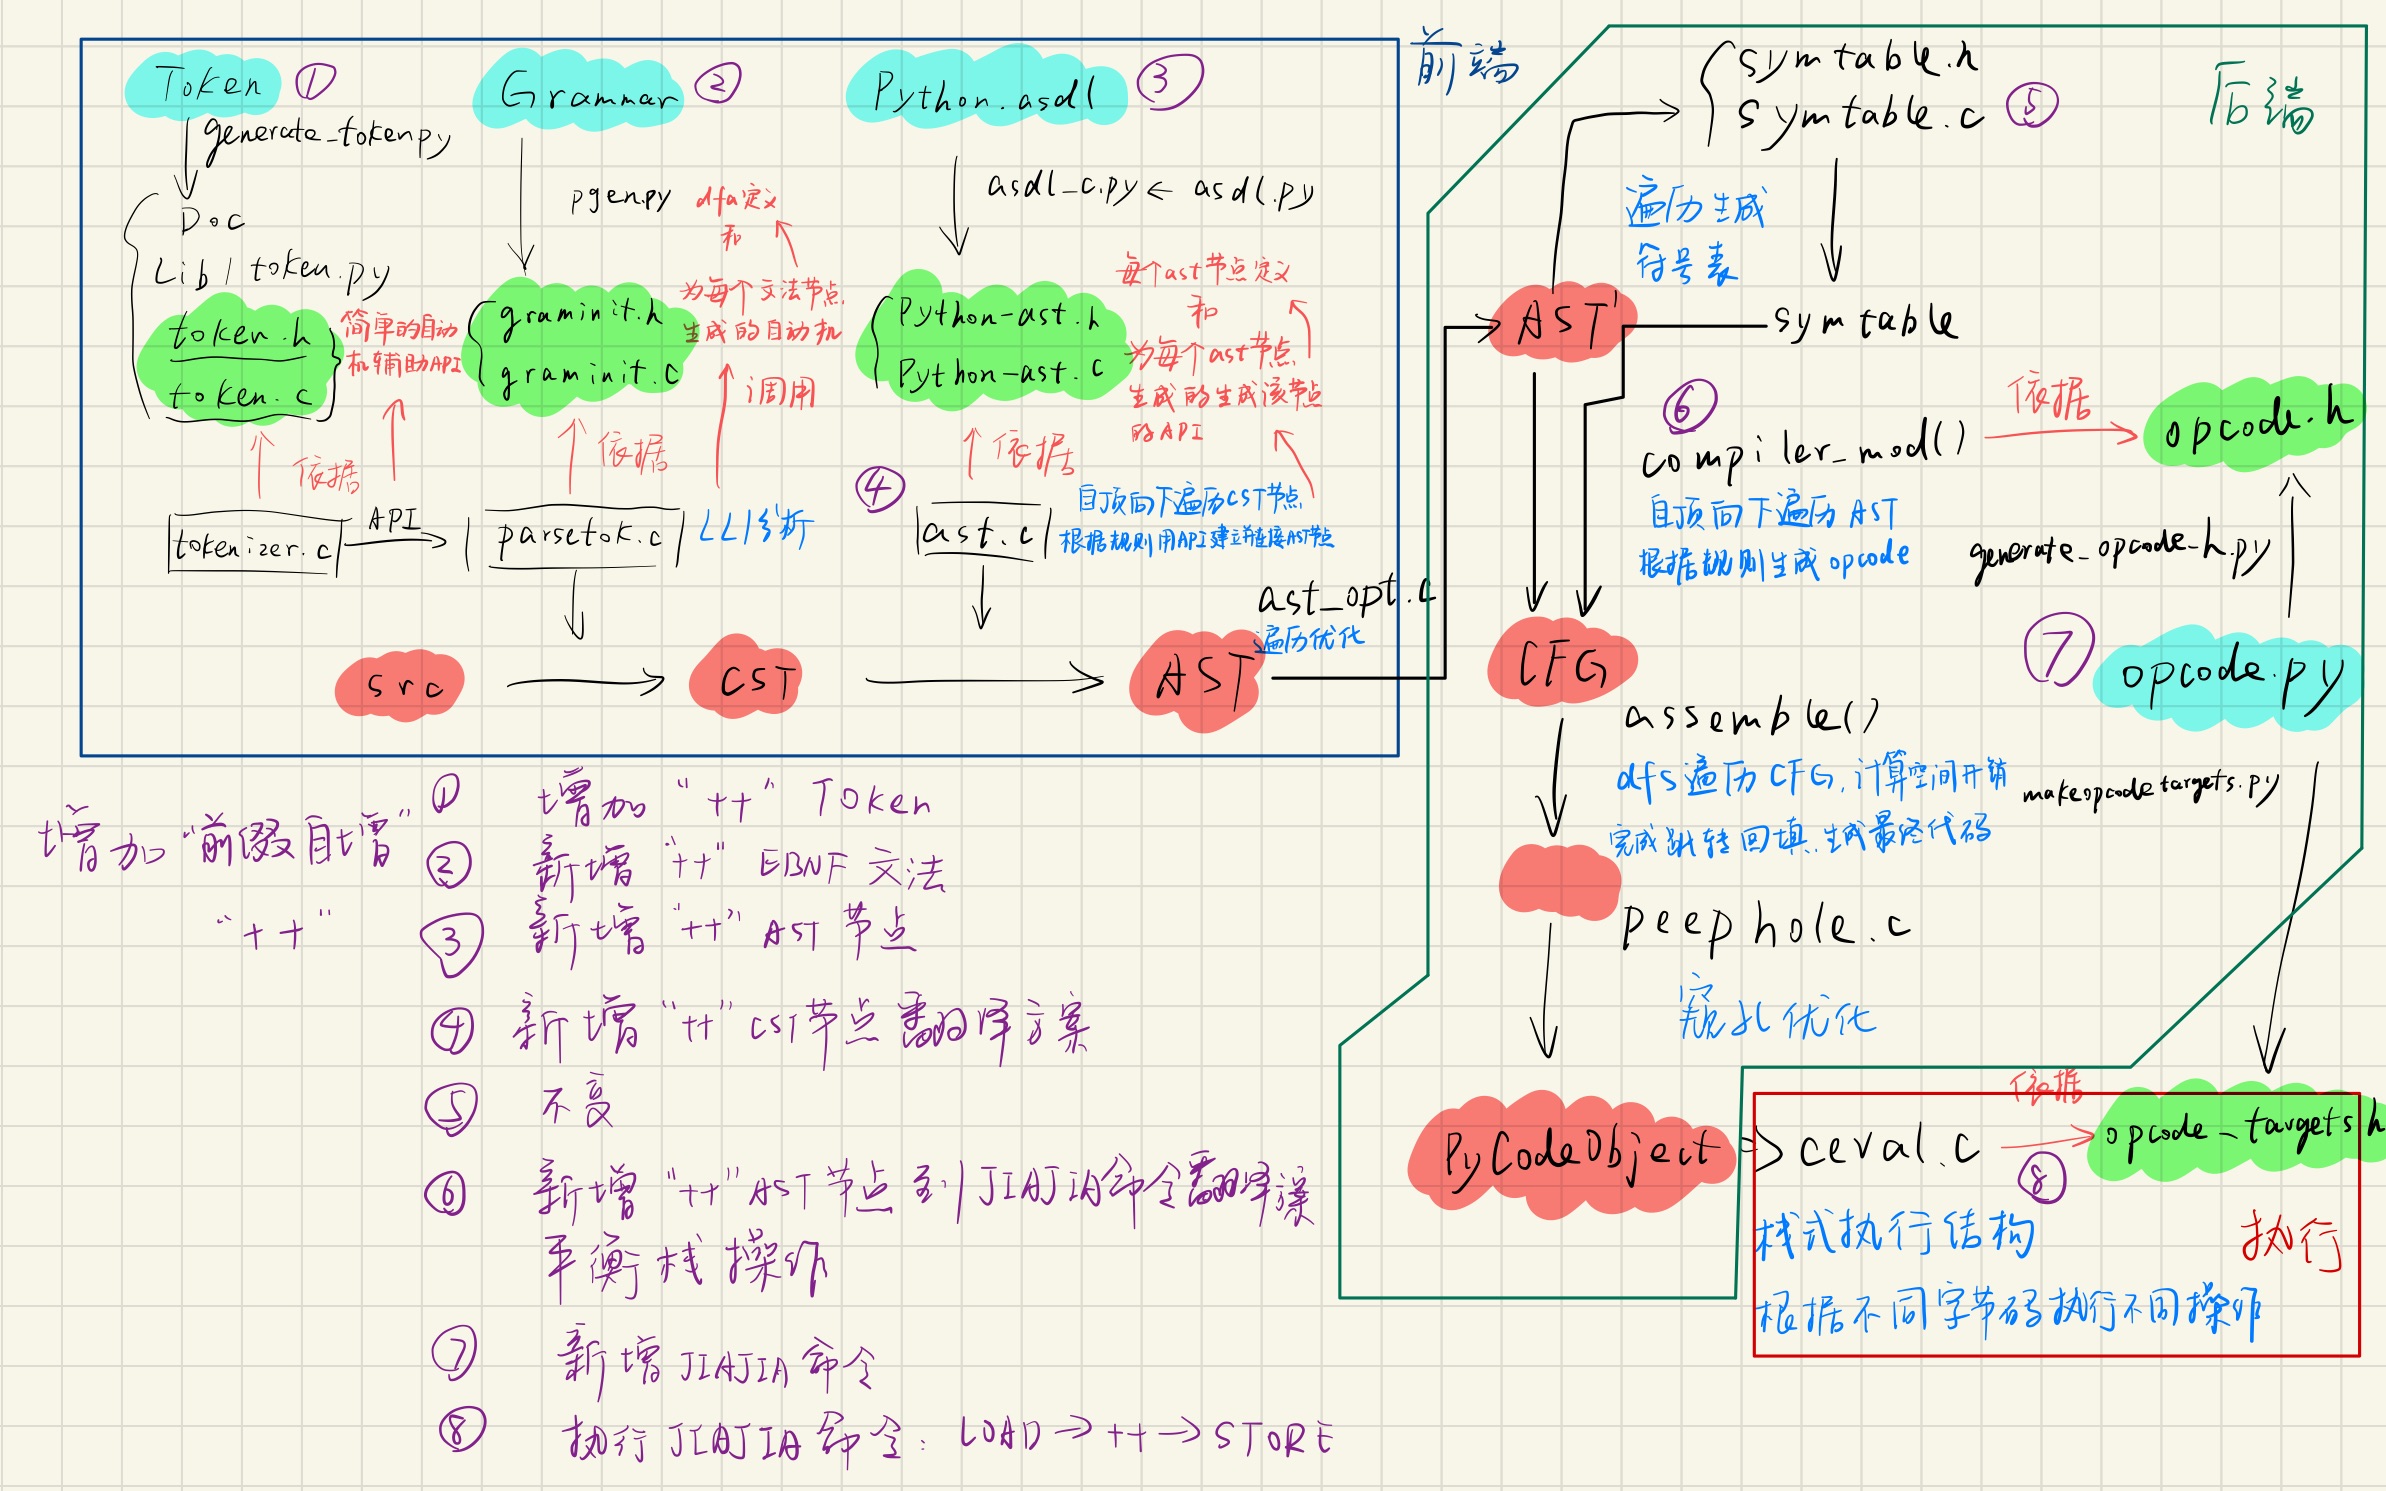 Token ①
generate_token.py
Doc
Lib/token.py
token.h
token.c
简单的自动
机辅助API
依据
tokenizer.c
API
Grammar ②
pgen.py
dfa定义
和
为每个文法节点
生成的自动机
graminit.h
graminit.c
调用
依据
parsetok.c
LL1分析
Python.asdl ③
asdl_c.py ← asdl.py
Python-ast.h
Python-ast.c
每个ast节点定义
和
为每个ast节点
生成的生成该节点
的API
依据
④
ast.c
自顶向下遍历CST节点
根据规则用API建立并链接AST节点
src
CST
AST
ast_opt.c
遍历优化
前端
后端
symtable.h
symtable.c ⑤
遍历生成
符号表
AST'
symtable
⑥
compiler_mod()
依据
opcode.h
自顶向下遍历AST
根据规则生成opcode
generate_opcode_h.py
⑦
opcode.py
CFG
assemble()
dfs遍历CFG,计算空间开销
完成跳转回填,生成最终代码
makeopcodetargets.py
peephole.c
窥孔优化
PyCodeObject
ceval.c
依据
⑧
opcode_targets.h
栈式执行结构
执行
根据不同字节码执行不同操作
增加“前缀自增”
“++”
① 增加“++”Token
② 新增“++”EBNF文法
③ 新增“++”AST节点
④ 新增“++”CST节点翻译方案
⑤ 不变
⑥ 新增“++”AST节点到JIAJIA命令翻译
平衡栈操作
⑦ 新增JIAJIA命令
⑧ 执行JIAJIA命令:LOAD→++→STORE